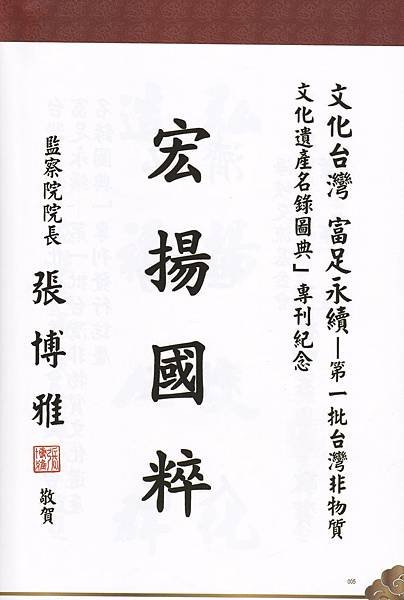 文化台灣 富足永續—第一批台灣非物質
文化遺產名錄圖典」專刊紀念
宏揚國粹
監察院院長 張博雅 敬賀
張博雅
005